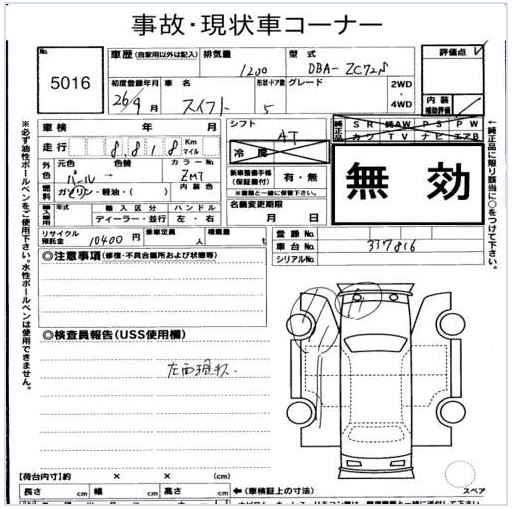 事故・現状車コーナー
No.
5016
車歴 (自家用以外は記入)
排気量 1200
型式 DBA-ZC72S
評価点
初度登録年月 26/9月
車名 スイフト
形状・ドア数 5
グレード
2WD
・
4WD
内装
補助評価
※必ず油性ボールペンをご使用下さい。水性ボールペンは使用できません。
車検 年 月
走行 8.8,8 Km マイル
シフト AT
冷房
純正品 SR 純AW PS PW
カワ TV ナビ エアB
←純正品に限り該当に○をつけて下さい。
外色 元色 パール
色替
カラーNo. ZMT
新車整備手帳
(保証書付)
有・無
※車輌と一緒に保管下さい。
燃料 ガソリン・軽油・( )
内装色
無効
輸入車用 年式 輸入区分 ハンドル
ディーラー・並行 左・右
名義変更期限
月 日
リサイクル預託金 10400円
乗車定員 人
積載量 t
登録No.
車台No. 337816
シリアルNo.
◎注意事項(修復・不具合箇所および状態等)
◎検査員報告(USS使用欄)
左面現状.
【荷台内寸】約 × × (cm)
長さ cm 幅 cm 高さ cm ←(車検証上の寸法)
スペア